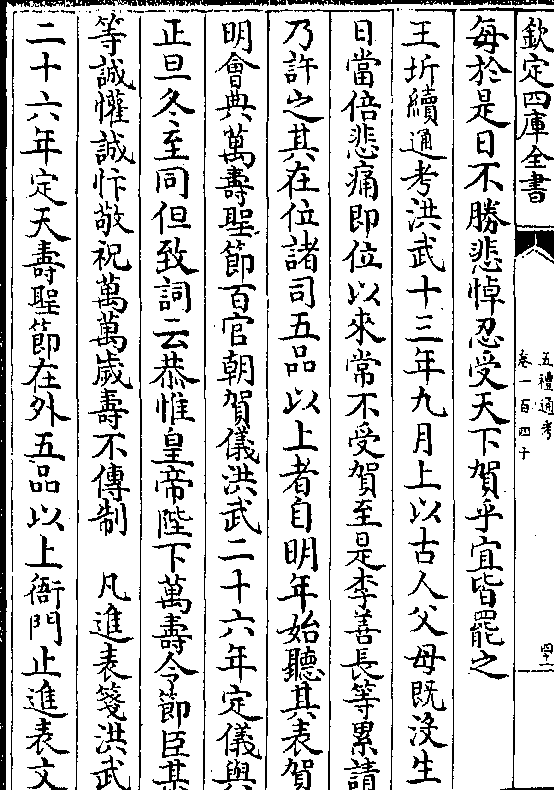 欽定四庫全書
五禮通考
卷一百四十
四二
每於是日不勝悲悼忍受天下賀乎宜皆罷之
王圻續通考洪武十三年九月上以古人父母既沒生
日當倍悲痛即位以來常不受賀至是李善長等累請
乃許之其在位諸司五品以上者自明年始聽其表賀
明會典萬壽聖節百官朝賀儀洪武二十六年定儀與
正旦冬至同但致詞云恭惟皇帝陛下萬壽令節臣某
等誠懽誠忭敬祝萬萬歲壽不傳制　凡進表箋洪武
二十六年定天壽聖節在外五品以上衙門止進表文